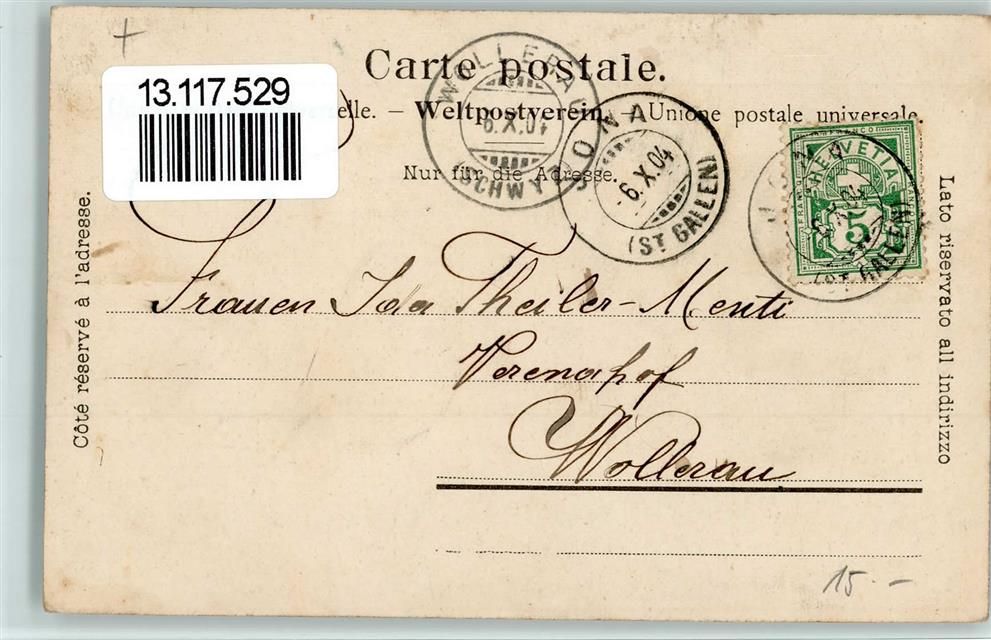 Carte postale.
13.117.529
elle. – Weltpostverein. – Unione postale universale.
Nur für die Adresse.
WOLLERAU
6.X.04
(SCHWYZ)
JONA
6.X.04
(ST GALLEN)
JONA
(ST GALLEN)
HELVETIA
FRANCO
5
Côté réservé à l'adresse.
Lato riservato all indirizzo
Frauen Ida Theiler-Menti
Verenahof
Wollerau
15.–